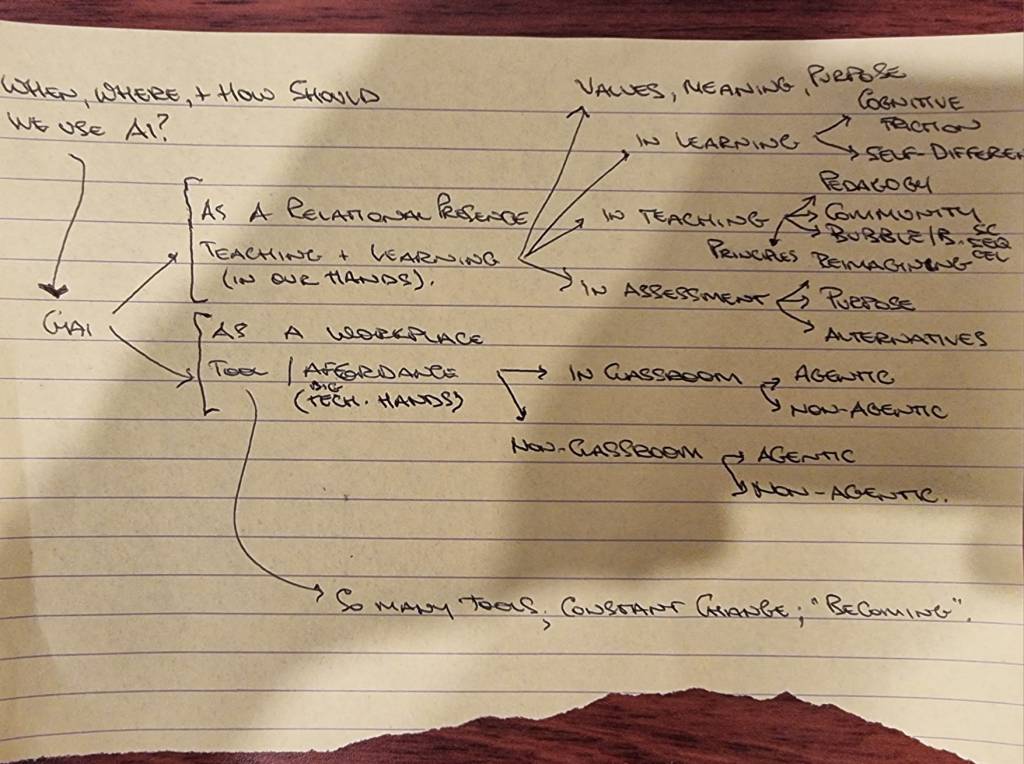 WHEN, WHERE, + HOW SHOULD
WE USE AI?
GAI
AS A RELATIONAL PRESENCE
TEACHING + LEARNING
(IN OUR HANDS).
VALUES, MEANING, PURPOSE
IN LEARNING
COGNITIVE
FRICTION
SELF-DIFFEREN
IN TEACHING
PEDAGOGY
COMMUNITY
BUBBLE/B. SC
SEQ
CEL
PRINCIPLES
IN ASSESSMENT
REIMAGINING
PURPOSE
ALTERNATIVES
AS A WORKPLACE
TOOL / AFFORDANCE
BIG
(TECH. HANDS)
IN CLASSROOM
AGENTIC
NON-AGENTIC
NON-CLASSROOM
AGENTIC
NON-AGENTIC.
SO MANY TOOLS; CONSTANT CHANGE; "BECOMING".